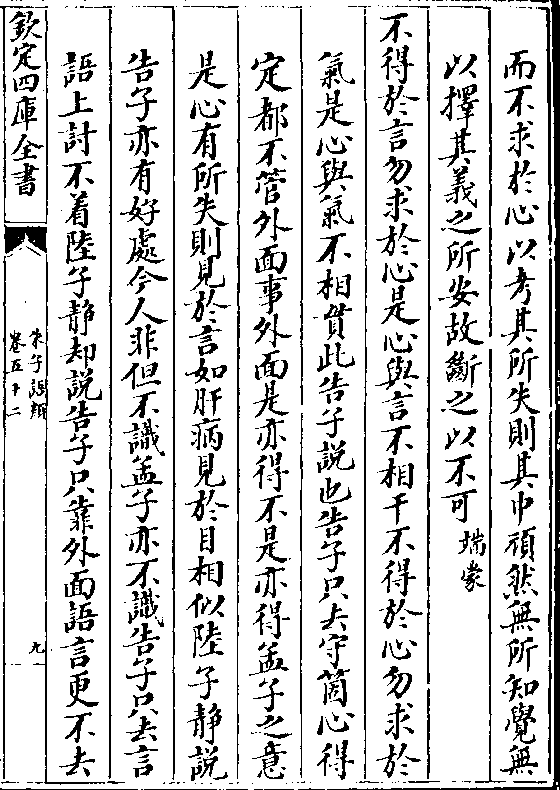 而不求於心以考其所失則其中頑然無所知覺無
以擇其義之所安故斷之以不可端蒙
不得於言勿求於心是心與言不相干不得於心勿求於
氣是心與氣不相貫此告子說也告子只去守箇心得
定都不管外面事外面是亦得不是亦得孟子之意
是心有所失則見於言如肝病見於目相似陸子静說
告子亦有好處今人非但不識孟子亦不識告子只去言
語上討不着陸子静却說告子只靠外面語言更不去
欽定四庫全書
朱子語類
卷五十二
九